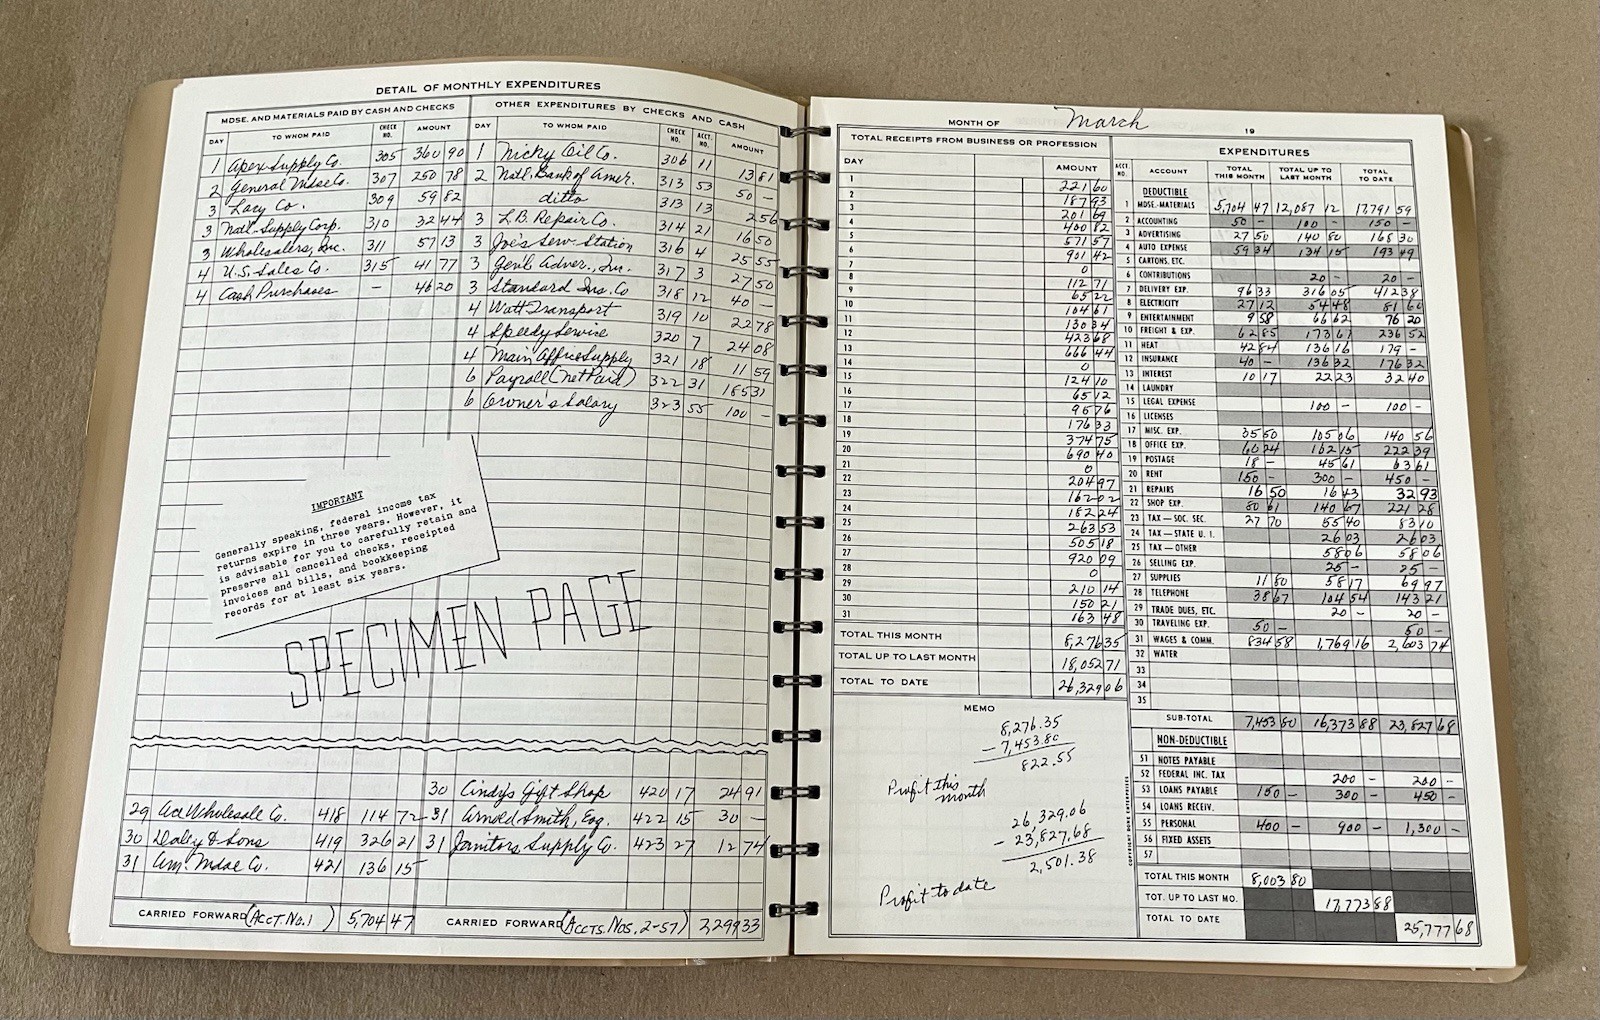 DETAIL OF MONTHLY EXPENDITURES
MDSE. AND MATERIALS PAID BY CASH AND CHECKS
OTHER EXPENDITURES BY CHECKS AND CASH
DAY TO WHOM PAID CHECK NO. AMOUNT DAY TO WHOM PAID CHECK NO. ACCT. NO. AMOUNT
1 Apex Supply Co. 305 360 90 1 Nicky Oil Co. 306 11 13 81
2 General Mdse Co. 307 250 78 2 Natl. Bank of Amer. 313 53 50 —
3 Lacy Co. 309 59 82 ditto 313 13 2 56
3 Nat'l Supply Corp. 310 32 44 3 L.B. Repair Co. 314 21 16 50
3 Wholesalers, Inc. 311 57 13 3 Joe's Serv. Station 316 4 25 55
4 U.S. Sales Co. 315 41 77 3 Gen'l Adver., Inc. 317 3 27 50
4 Cash Purchases — 46 20 3 Standard Ins. Co 318 12 40 —
4 Watt Transport 319 10 22 78
4 Speedy Service 320 7 24 08
4 Main Office Supply 321 18 11 59
6 Payroll (Net Paid) 322 31 185 31
6 Owner's Salary 323 55 100 —
IMPORTANT
Generally speaking, federal income tax
returns expire in three years. However, it
is advisable for you to carefully retain and
preserve all cancelled checks, receipted
invoices and bills, and bookkeeping
records for at least six years.
SPECIMEN PAGE
30 Cindy's Gift Shop 420 17 24 91
29 Ace Wholesale Co. 418 114 72 31 Arnold Smith, Esq. 422 15 30 —
30 Daley & Sons 419 326 21 31 Janitors Supply Co. 423 27 12 74
31 Am. Mdse Co. 421 136 15
CARRIED FORWARD (Acct. No. 1) 5,704 47 CARRIED FORWARD (Accts. Nos. 2-57) 2,299 33
MONTH OF March 19
TOTAL RECEIPTS FROM BUSINESS OR PROFESSION
DAY AMOUNT
1 221 60
2 187 93
3 201 69
4 400 82
5 571 57
6 901 42
7 0
8 112 71
9 65 22
10 104 61
11 130 34
12 423 68
13 666 44
14 0
15 124 10
16 65 12
17 95 76
18 176 33
19 374 75
20 690 40
21 0
22 204 97
23 162 02
24 182 24
25 263 53
26 505 18
27 920 09
28 0
29 210 14
30 150 21
31 163 48
TOTAL THIS MONTH 8,276 35
TOTAL UP TO LAST MONTH 18,052 71
TOTAL TO DATE 26,329 06
MEMO
8,276.35
- 7,453.80
822.55
Profit this
month
26,329.06
- 23,827.68
2,501.38
Profit to date
EXPENDITURES
ACCT. NO. ACCOUNT TOTAL THIS MONTH TOTAL UP TO LAST MONTH TOTAL TO DATE
DEDUCTIBLE
1 MDSE.-MATERIALS 5,704 47 12,087 12 17,791 59
2 ACCOUNTING 50 — 100 — 150 —
3 ADVERTISING 27 50 140 80 168 30
4 AUTO EXPENSE 59 34 134 15 193 49
5 CARTONS, ETC.
6 CONTRIBUTIONS 20 — 20 —
7 DELIVERY EXP. 96 33 316 05 412 38
8 ELECTRICITY 27 12 54 48 81 60
9 ENTERTAINMENT 9 58 66 62 76 20
10 FREIGHT & EXP. 62 85 173 67 236 52
11 HEAT 42 84 136 16 179 —
12 INSURANCE 40 — 136 32 176 32
13 INTEREST 10 17 22 23 32 40
14 LAUNDRY
15 LEGAL EXPENSE 100 — 100 —
16 LICENSES
17 MISC. EXP. 35 50 105 06 140 56
18 OFFICE EXP. 60 24 162 15 222 39
19 POSTAGE 18 — 45 61 63 61
20 RENT 150 — 300 — 450 —
21 REPAIRS 16 50 16 43 32 93
22 SHOP EXP. 80 61 140 67 221 28
23 TAX — SOC. SEC. 27 70 55 40 83 10
24 TAX — STATE U. I. 26 03 26 03
25 TAX — OTHER 58 06 58 06
26 SELLING EXP. 25 — 25 —
27 SUPPLIES 11 80 58 17 69 97
28 TELEPHONE 38 67 104 54 143 21
29 TRADE DUES, ETC. 20 — 20 —
30 TRAVELING EXP. 50 — 50 —
31 WAGES & COMM. 834 58 1,769 16 2,603 74
32 WATER
33
34
35
SUB-TOTAL 7,453 80 16,373 88 23,827 68
NON-DEDUCTIBLE
51 NOTES PAYABLE
52 FEDERAL INC. TAX 200 — 200 —
53 LOANS PAYABLE 150 — 300 — 450 —
54 LOANS RECEIV.
55 PERSONAL 400 — 900 — 1,300 —
56 FIXED ASSETS
57
TOTAL THIS MONTH 8,003 80
TOT. UP TO LAST MO. 17,773 88
TOTAL TO DATE 25,777 68
COPYRIGHT DOME ENTERPRISES